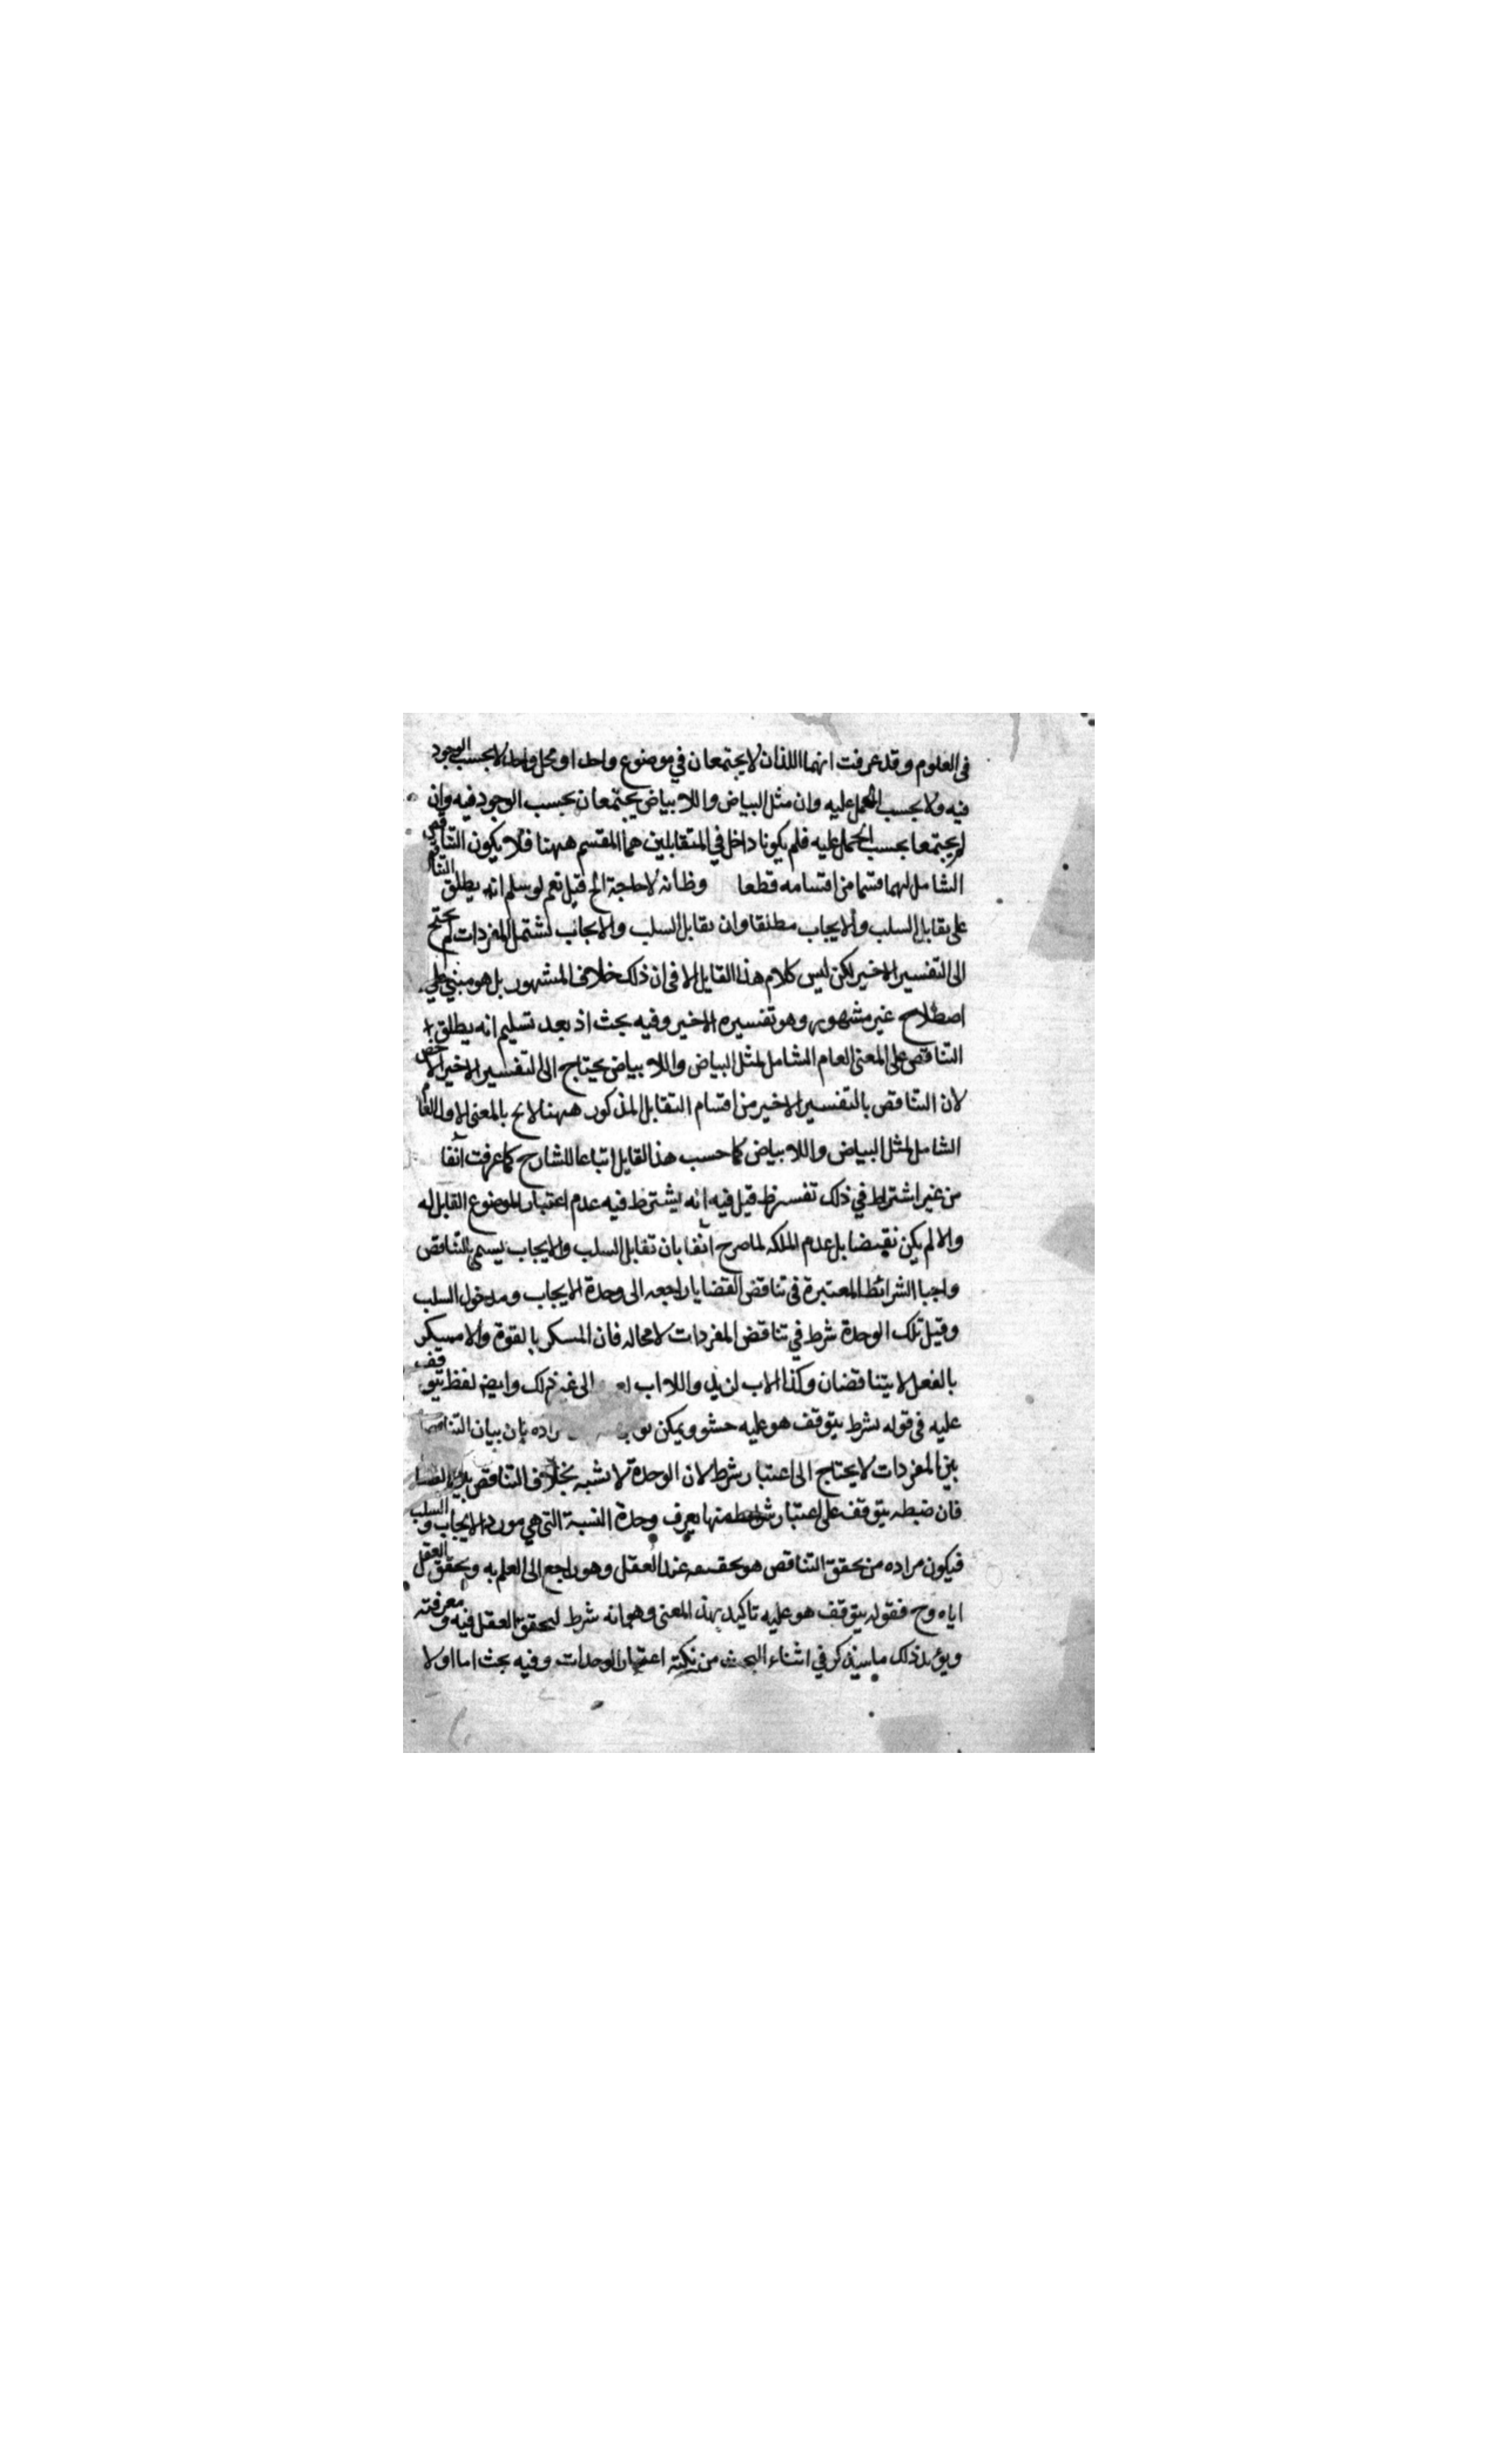 فى العلوم وقد عرفت انهما اللذان لا يجتمعان في موضوع واحد او محل واحد لا بحسب الوجود
فيه ولا بحسب الحمل عليه وان مثل البياض واللا بياض يجتمعان بحسب الوجود فيه وان
لم يجتمعا بحسب الحمل عليه فلم يكونا داخل في المتقابلين هما المقسم ههنا فلا يكون التناقض
الشامل لهما قسما من اقسامه قطعا وظ انه لا حاجة الخ قيل نعم لو سلم انه يطلق التناقض
على تقابل السلب والايجاب مطلقا وان تقابل السلب والايجاب يشتمل المفردات لم يحتج
الى التفسير الاخير لكن ليس كلام هذا القايل الا فى ان ذلك خلاف المشهور بل هو مبني على
اصطلاح غير مشهور وهو تفسيره الاخير وفيه بحث اذ بعد تسليم انه يطلق
التناقض على المعنى العام الشامل لمثل البياض واللا بياض يحتاج الى التفسير الاخير الاخص
لان التناقض بالتفسير الاخير من اقسام التقابل المذكور ههنا لا بالمعنى الاول العام
الشامل لمثل البياض واللا بياض كما حسب هذا القايل اتباعا للشارح كما عرفت آنفا
من غير اشتراط في ذلك تفسير ظ قيل فيه انه يشترط فيه عدم اعتبار الموضوع القابل له
والا لم يكن نقيضا بل عدم الملكه لما صرح آنفا بان تقابل السلب والايجاب يسمى بالتناقض
واجبا الشرائط المعتبرة فى تناقض القضايا راجعه الى وحدة الايجاب ومدخول السلب
وقيل تلك الوحدة شرط في تناقض المفردات لا محاله فان المسكر بالقوة والا مسكر
بالفعل لا يتناقضان وكذا الاب لزيد واللا اب الى غير ذلك وايضا لفظ يتوقف
عليه فى قوله بشرط يتوقف هو عليه حشو ويمكن بان بيان التناقض
بين المفردات لا يحتاج الى اعتبار شرط لان الوحدة لا تشبه بخلاف التناقض بين القضايا
فان ضبطه يتوقف على اعتبار شرائط منها يعرف وحدة النسبة التى هي مورد الايجاب والسلب
فيكون مراده من تحقق التناقض هو تحققه عند العقل وهو راجع الى العلم به وتحقق العقل
اياه وح فقوله يتوقف هو عليه تاكيد بهذا المعنى وهو انه شرط لتحقق العقل فيه ومعرفته
ويؤيد ذلك ما سيذكر في اثناء البحث من نكتة اعتبار الوحدات وفيه بحث اما اولا